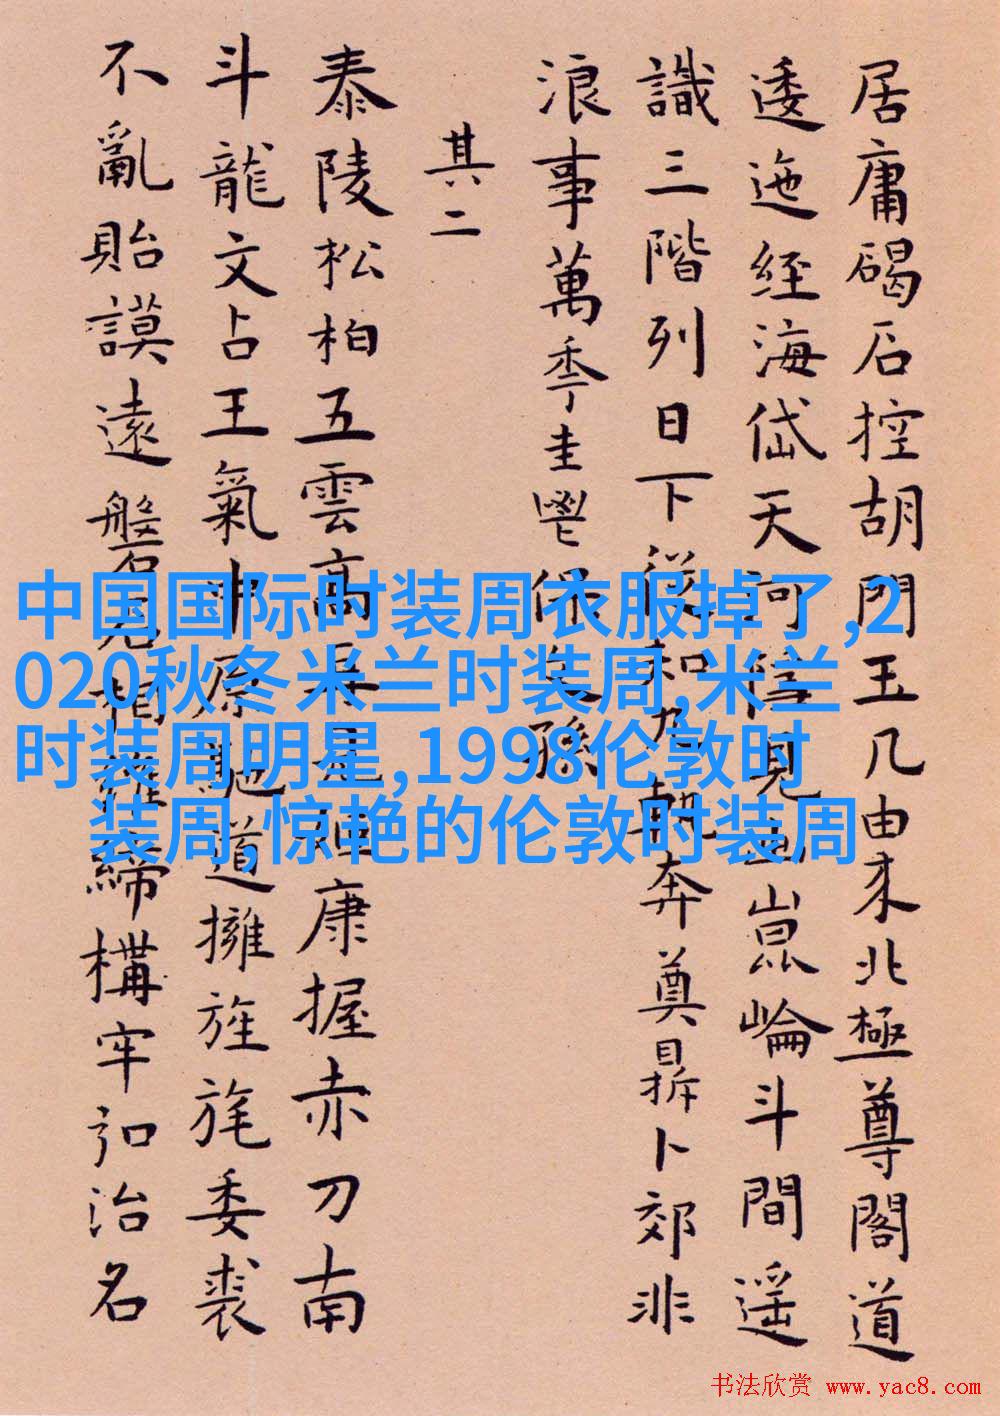 居庸碣石控胡門玉几由来北極尊閣道
逶迤經海岱天河見崑崙斗間遥
識三階列日下從知朝奔奠鼎卜郊非
浪事萬季圭鬯保孫
其二
泰陵松柏五雲高康握赤刀南
斗龍文占王氣中原馳道擁旌旄委裘
不亂貽謨遠盤石相維締構牢引治名
中国国际时装周衣服掉了,2
020秋冬米兰时装周,米兰
时装周明星,1998伦敦时
装周,惊艳的伦敦时装周
书法欣赏 www.yac8.com